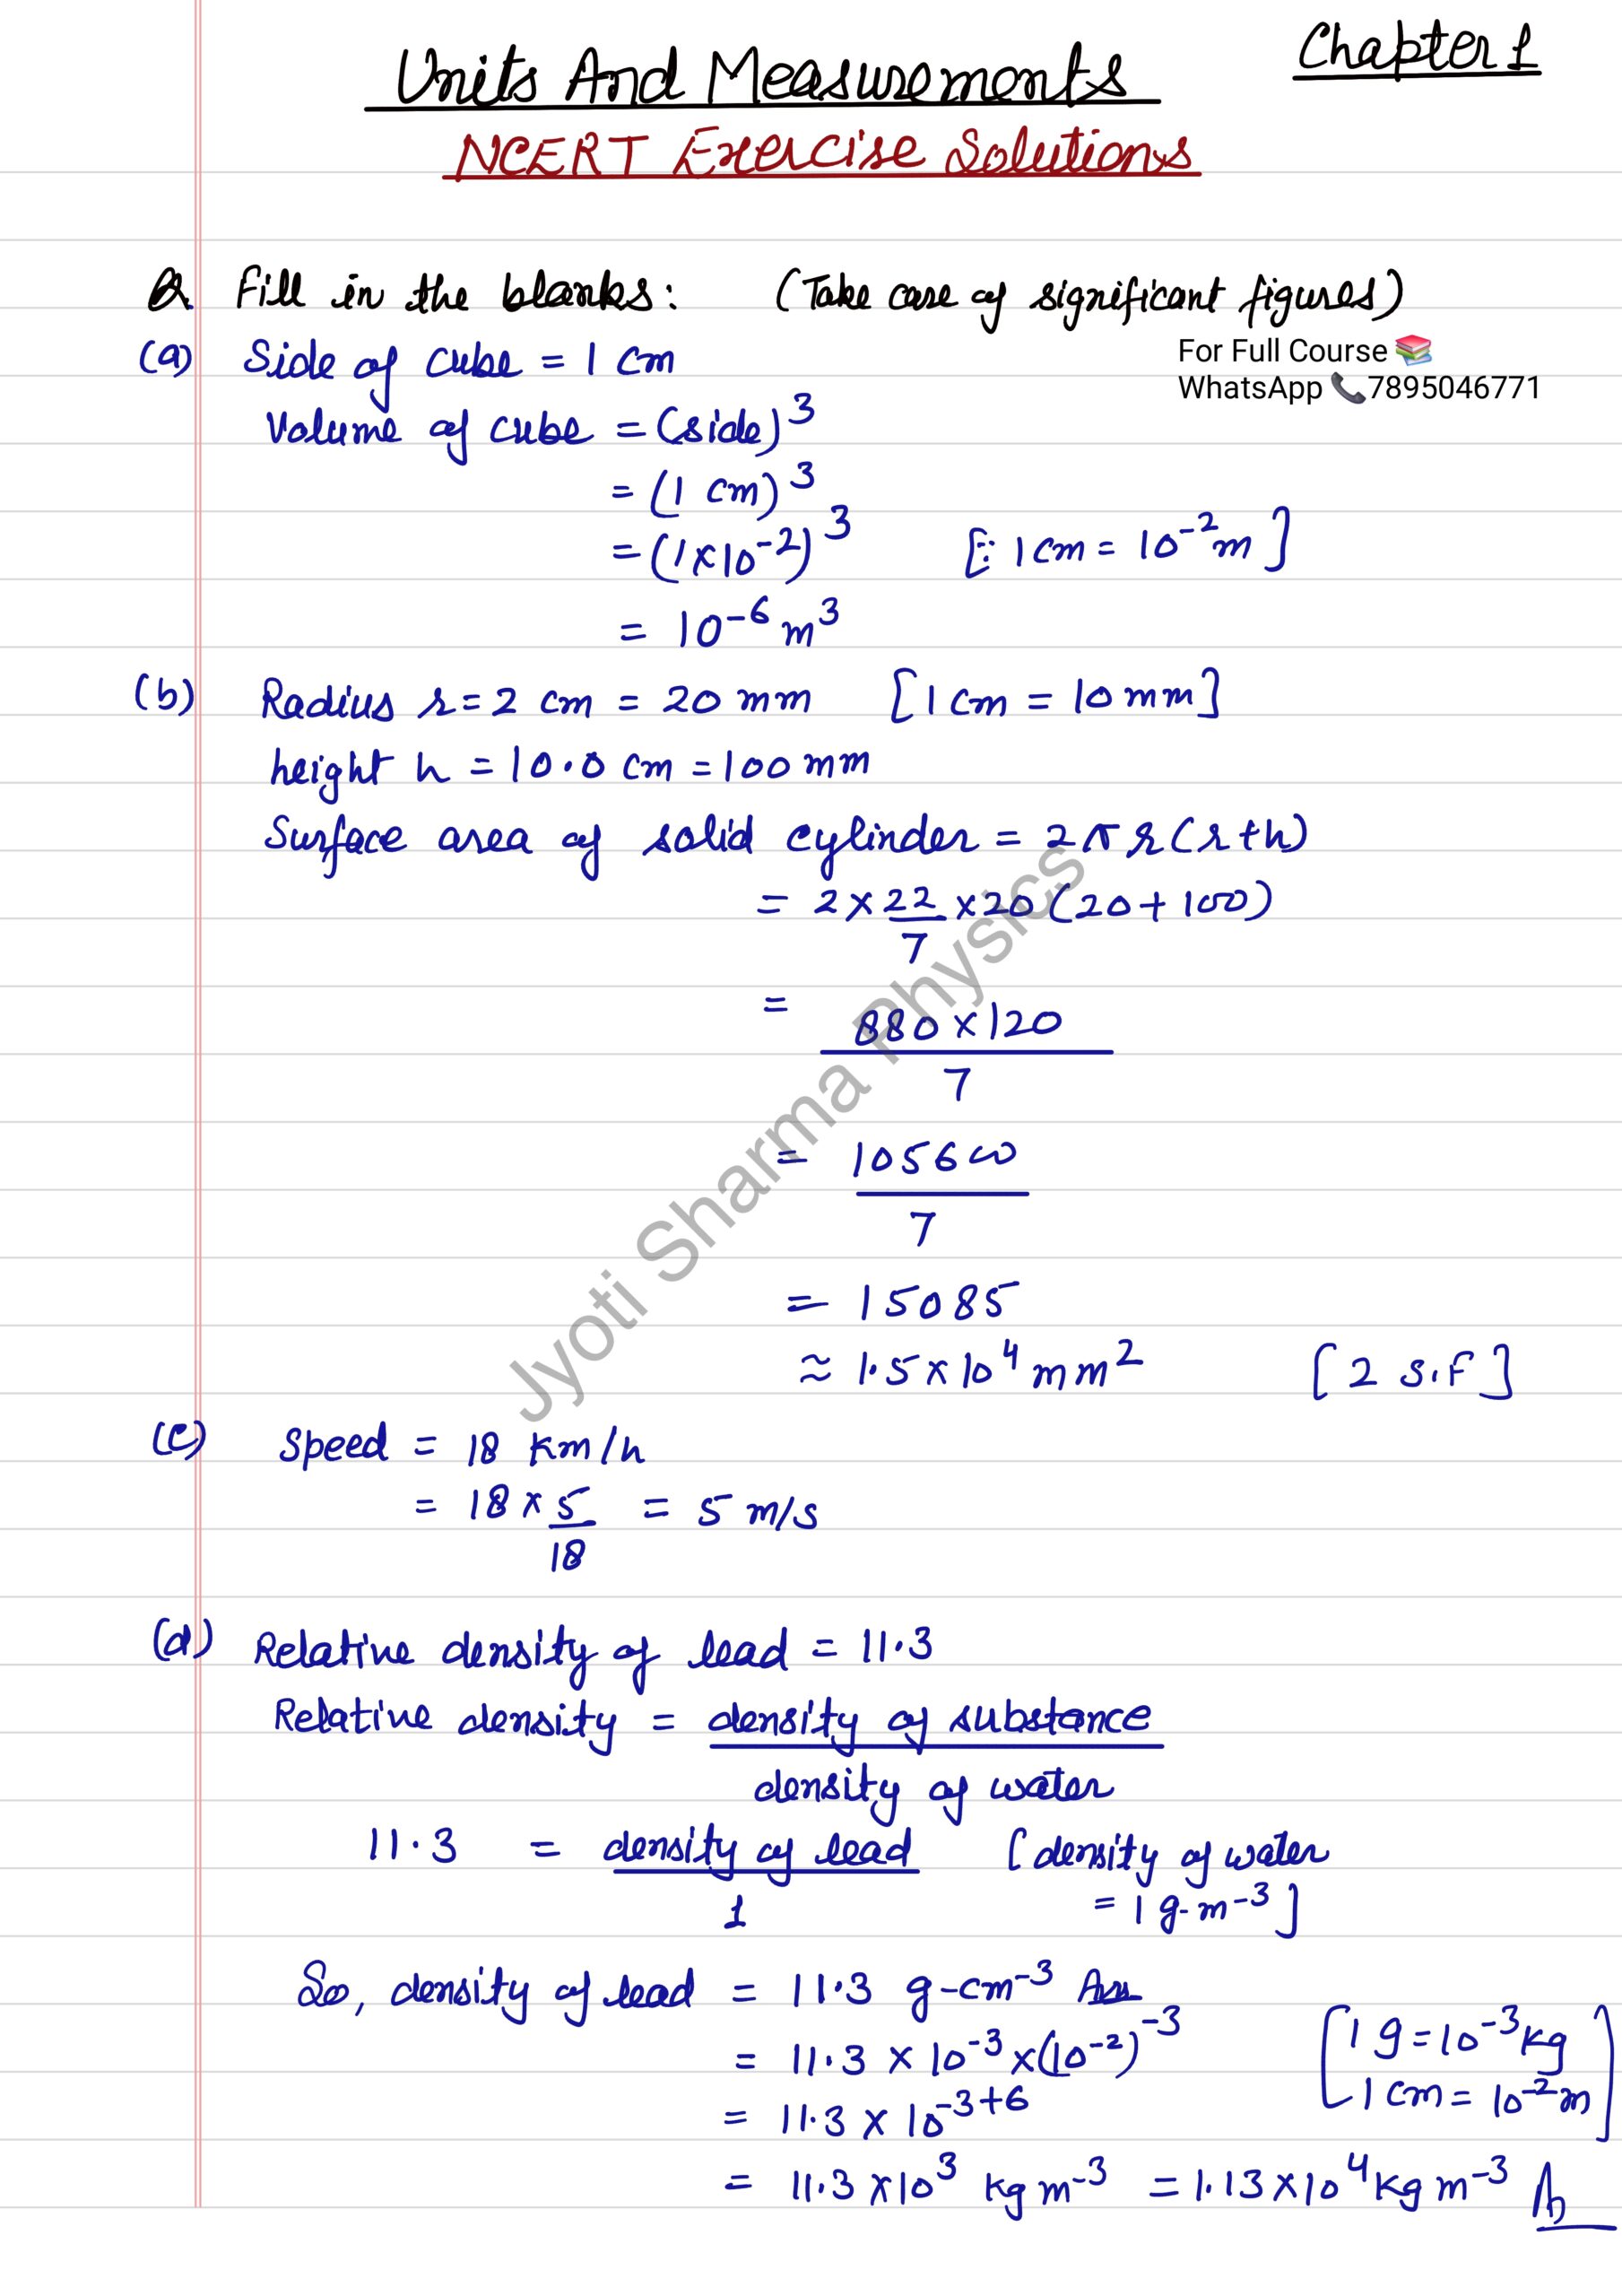 Chapter 1
Units And Measurements
NCERT Exercise Solutions
Q. Fill in the blanks: (Take care of significant figures)
For Full Course 📚
WhatsApp 📞7895046771
(a) Side of cube = 1 cm
Volume of cube = (side)³
= (1 cm)³
= (1×10⁻²)³ [∵ 1 cm = 10⁻² m]
= 10⁻⁶ m³
(b) Radius r = 2 cm = 20 mm [1 cm = 10 mm]
height h = 10.0 cm = 100 mm
Surface area of solid cylinder = 2πr(r+h)
= 2×22/7×20(20+100)
= 880×120/7
= 105600/7
= 15085
≈ 1.5×10⁴ mm² [2 S.F]
(c) Speed = 18 km/h
= 18×5/18 = 5 m/s
(d) Relative density of lead = 11.3
Relative density = density of substance
density of water
11.3 = density of lead/1 [density of water
= 1 g-m⁻³]
So, density of lead = 11.3 g-cm⁻³ Ans
= 11.3 × 10⁻³×(10⁻²)⁻³ [1 g = 10⁻³ kg
= 11.3 × 10⁻³⁺⁶ 1 cm = 10⁻² m]
= 11.3 ×10³ kg m⁻³ = 1.13×10⁴ kg m⁻³ A
Jyoti Sharma Physics